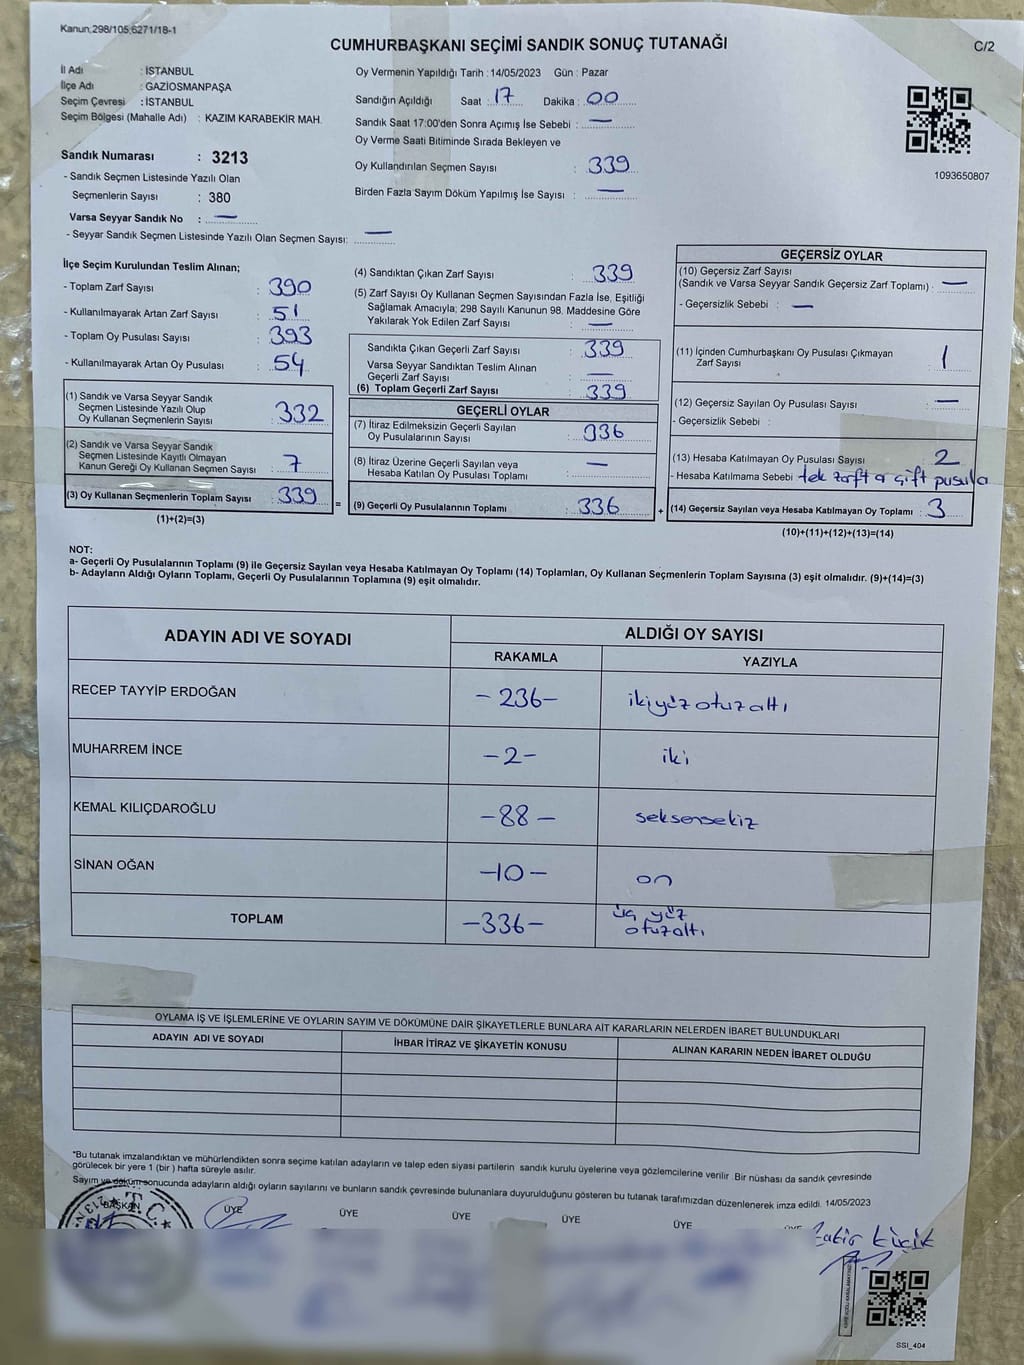 Kanun,298/105,6271/18-1
CUMHURBAŞKANI SEÇİMİ SANDIK SONUÇ TUTANAĞI
C/2
İl Adı : İSTANBUL
İlçe Adı : GAZİOSMANPAŞA
Seçim Çevresi : İSTANBUL
Seçim Bölgesi (Mahalle Adı) : KAZIM KARABEKİR MAH.
Sandık Numarası : 3213
- Sandık Seçmen Listesinde Yazılı Olan
Seçmenlerin Sayısı : 380
Varsa Seyyar Sandık No : —
- Seyyar Sandık Seçmen Listesinde Yazılı Olan Seçmen Sayısı: —
Oy Vermenin Yapıldığı Tarih : 14/05/2023 Gün : Pazar
Sandığın Açıldığı Saat : 17 Dakika : 00
Sandık Saat 17:00'den Sonra Açımış İse Sebebi : —
Oy Verme Saati Bitiminde Sırada Bekleyen ve
Oy Kullandırılan Seçmen Sayısı : 339
Birden Fazla Sayım Döküm Yapılmış İse Sayısı : —
1093650807
İlçe Seçim Kurulundan Teslim Alınan;
- Toplam Zarf Sayısı : 390
- Kullanılmayarak Artan Zarf Sayısı : 51
- Toplam Oy Pusulası Sayısı : 393
- Kullanılmayarak Artan Oy Pusulası : 54
(1) Sandık ve Varsa Seyyar Sandık
Seçmen Listesinde Yazılı Olup
Oy Kullanan Seçmenlerin Sayısı : 332
(2) Sandık ve Varsa Seyyar Sandık
Seçmen Listesinde Kayıtlı Olmayan
Kanun Gereği Oy Kullanan Seçmen Sayısı : 7
(3) Oy Kullanan Seçmenlerin Toplam Sayısı : 339
(1)+(2)=(3)
=
(4) Sandıktan Çıkan Zarf Sayısı : 339
(5) Zarf Sayısı Oy Kullanan Seçmen Sayısından Fazla İse, Eşitliği
Sağlamak Amacıyla; 298 Sayılı Kanunun 98. Maddesine Göre
Yakılarak Yok Edilen Zarf Sayısı : —
Sandıkta Çıkan Geçerli Zarf Sayısı : 339
Varsa Seyyar Sandıktan Teslim Alınan
Geçerli Zarf Sayısı : —
(6) Toplam Geçerli Zarf Sayısı : 339
GEÇERLİ OYLAR
(7) İtiraz Edilmeksizin Geçerli Sayılan
Oy Pusulalarının Sayısı : 336
(8) İtiraz Üzerine Geçerli Sayılan veya
Hesaba Katılan Oy Pusulası Toplamı : —
(9) Geçerli Oy Pusulalarının Toplamı : 336
+
GEÇERSİZ OYLAR
(10) Geçersiz Zarf Sayısı
(Sandık ve Varsa Seyyar Sandık Geçersiz Zarf Toplamı) : —
- Geçersizlik Sebebi : —
(11) İçinden Cumhurbaşkanı Oy Pusulası Çıkmayan
Zarf Sayısı : 1
(12) Geçersiz Sayılan Oy Pusulası Sayısı : —
- Geçersizlik Sebebi :
(13) Hesaba Katılmayan Oy Pusulası Sayısı : 2
- Hesaba Katılmama Sebebi : tek zarfta çift pusula
(14) Geçersiz Sayılan veya Hesaba Katılmayan Oy Toplamı : 3
(10)+(11)+(12)+(13)=(14)
NOT:
a- Geçerli Oy Pusulalarının Toplamı (9) ile Geçersiz Sayılan veya Hesaba Katılmayan Oy Toplamı (14) Toplamları, Oy Kullanan Seçmenlerin Toplam Sayısına (3) eşit olmalıdır. (9)+(14)=(3)
b- Adayların Aldığı Oyların Toplamı, Geçerli Oy Pusulalarının Toplamına (9) eşit olmalıdır.
ADAYIN ADI VE SOYADI ALDIĞI OY SAYISI
RAKAMLA YAZIYLA
RECEP TAYYİP ERDOĞAN -236- ikiyüzotuzaltı
MUHARREM İNCE -2- iki
KEMAL KILIÇDAROĞLU -88- seksensekiz
SİNAN OĞAN -10- on
TOPLAM -336- üç yüz
otuzaltı
OYLAMA İŞ VE İŞLEMLERİNE VE OYLARIN SAYIM VE DÖKÜMÜNE DAİR ŞİKAYETLERLE BUNLARA AİT KARARLARIN NELERDEN İBARET BULUNDUKLARI
ADAYIN ADI VE SOYADI İHBAR İTİRAZ VE ŞİKAYETİN KONUSU ALINAN KARARIN NEDEN İBARET OLDUĞU
*Bu tutanak imzalandıktan ve mühürlendikten sonra seçime katılan adayların ve talep eden siyasi partilerin sandık kurulu üyelerine veya gözlemcilerine verilir Bir nüshası da sandık çevresinde
görülecek bir yere 1 (bir ) hafta süreyle asılır.
Sayım ve döküm sonucunda adayların aldığı oyların sayılarını ve bunların sandık çevresinde bulunanlara duyurulduğunu gösteren bu tutanak tarafımızdan düzenlenerek imza edildi. 14/05/2023
BAŞKAN ÜYE ÜYE ÜYE ÜYE ÜYE
T.C.
SSI_404